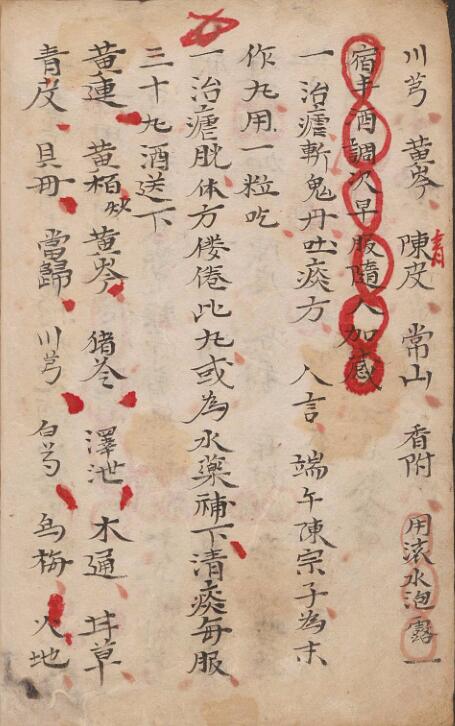 川芎 黄岑 陳皮 常山 香附 用滚水泡露一
青
宿手酒調次早服隨人加感
一 治瘧斬鬼丹吐痰方 人言 端午陳宗子為末
作丸用一粒吃
一 治瘧脱体方倭倦此丸或為水薬補下清痰每服
三十丸酒送下
黄連 黄柏炒 黄岑 猪苓 澤泄 木通 甘草
青皮 貝母 當歸 川芎 白芍 烏梅 人地